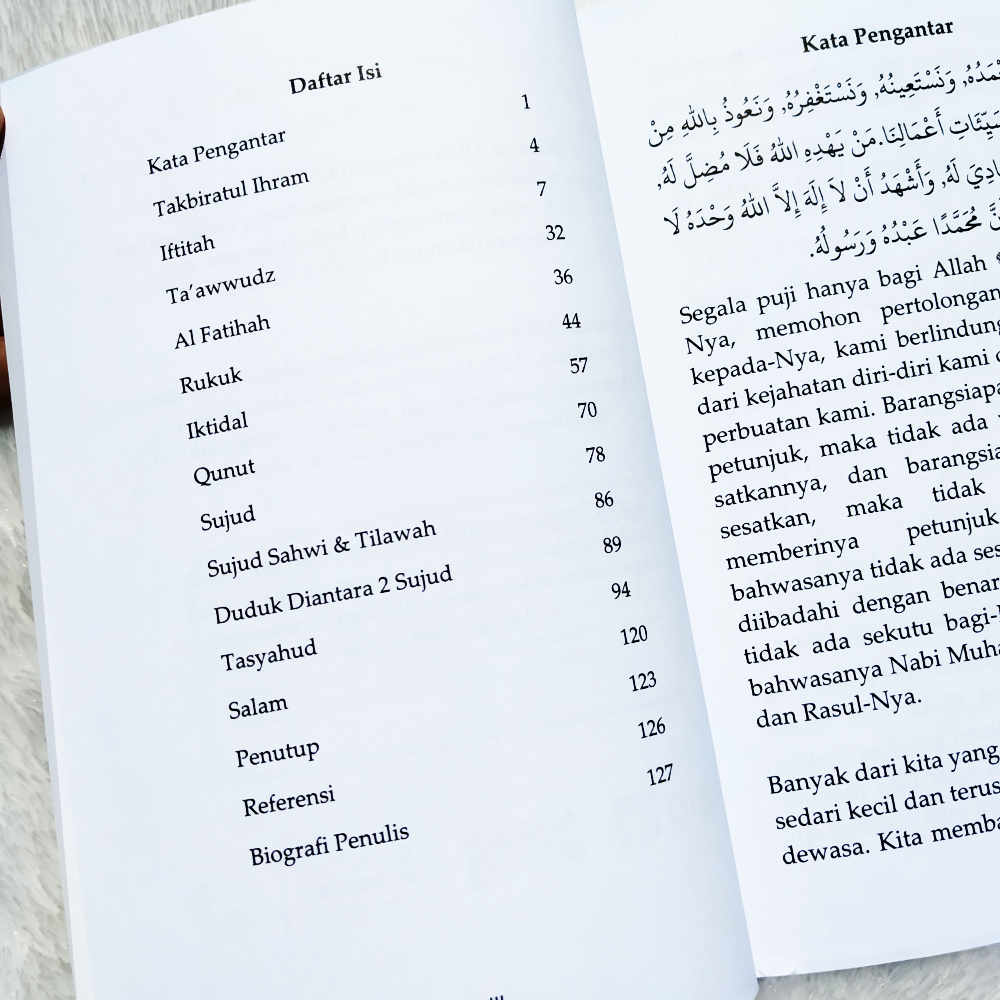 Daftar Isi
Kata Pengantar 1
Takbiratul Ihram 4
Iftitah 7
Ta'awwudz 32
Al Fatihah 36
Rukuk 44
Iktidal 57
Qunut 70
Sujud 78
Sujud Sahwi & Tilawah 86
Duduk Diantara 2 Sujud 89
Tasyahud 94
Salam 120
Penutup 123
Referensi 126
Biografi Penulis 127
Kata Pengantar
وَنَسْتَعِينُهُ, وَنَسْتَغْفِرُهُ, وَنَعُوذُ بِاللهِ مِنْ
أَعْمَالِنَا.مَنْ يَهْدِهِ اللهُ فَلَا مُضِلَّ لَهُ,
لَهُ, وَأَشْهَدُ أَنْ لاَ إِلَهَ إِلاَّ اللهُ وَحْدَهُ لَا
مُحَمَّدًا عَبْدُهُ وَرَسُولُهُ.
Segala puji hanya bagi Allah
Nya, memohon pertolongan
kepada-Nya, kami berlindung
dari kejahatan diri-diri kami
perbuatan kami. Barangsiapa
petunjuk, maka tidak ada
satkannya, dan
sesatkan, maka tidak
memberinya petunjuk
bahwasanya tidak ada
diibadahi dengan benar
tidak ada sekutu
bahwasanya Nabi
dan Rasul-Nya.
Banyak dari kita yang
sedari kecil dan
dewasa. Kita